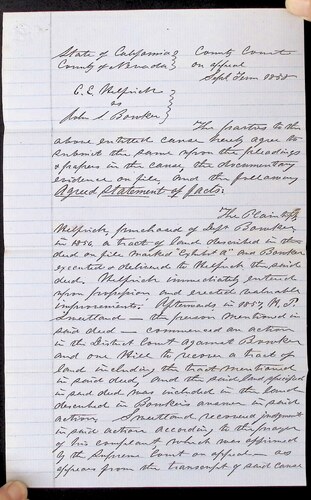 State of California } County Court
County of Nevada } on appeal
Sept Term
C. E. Helfrich }
vs
John S Bowker }
The parties to the
above entitled cause hereby agree to
submit the same upon the pleadings
& papers in the cause the documentary
evidence on file, and the following
Agreed Statement of Facts.
The Plaintiff
Helfrich, purchased of Deft Bowker
in 1856 a tract of land described in the
deed on file marked "Exhibit A" and Bowker
executed & delivered to Helfrich the said
deed. Helfrich immediately entered
upon possession and erected valuable
improvements. Afterwards in
the person mentioned in
said deed - commenced an action
in the District Court against Bowker
and one Hill to recover a tract of
land including the tract mentioned
in said deed, and the said land specified
in said deed was included in the land
described in Bowkers answer in said
action. recovered judgment
in said action according to the prayer
of his complaint which was affirmed
by the Supreme Court on appeal - as
appears from the transcript of said cause